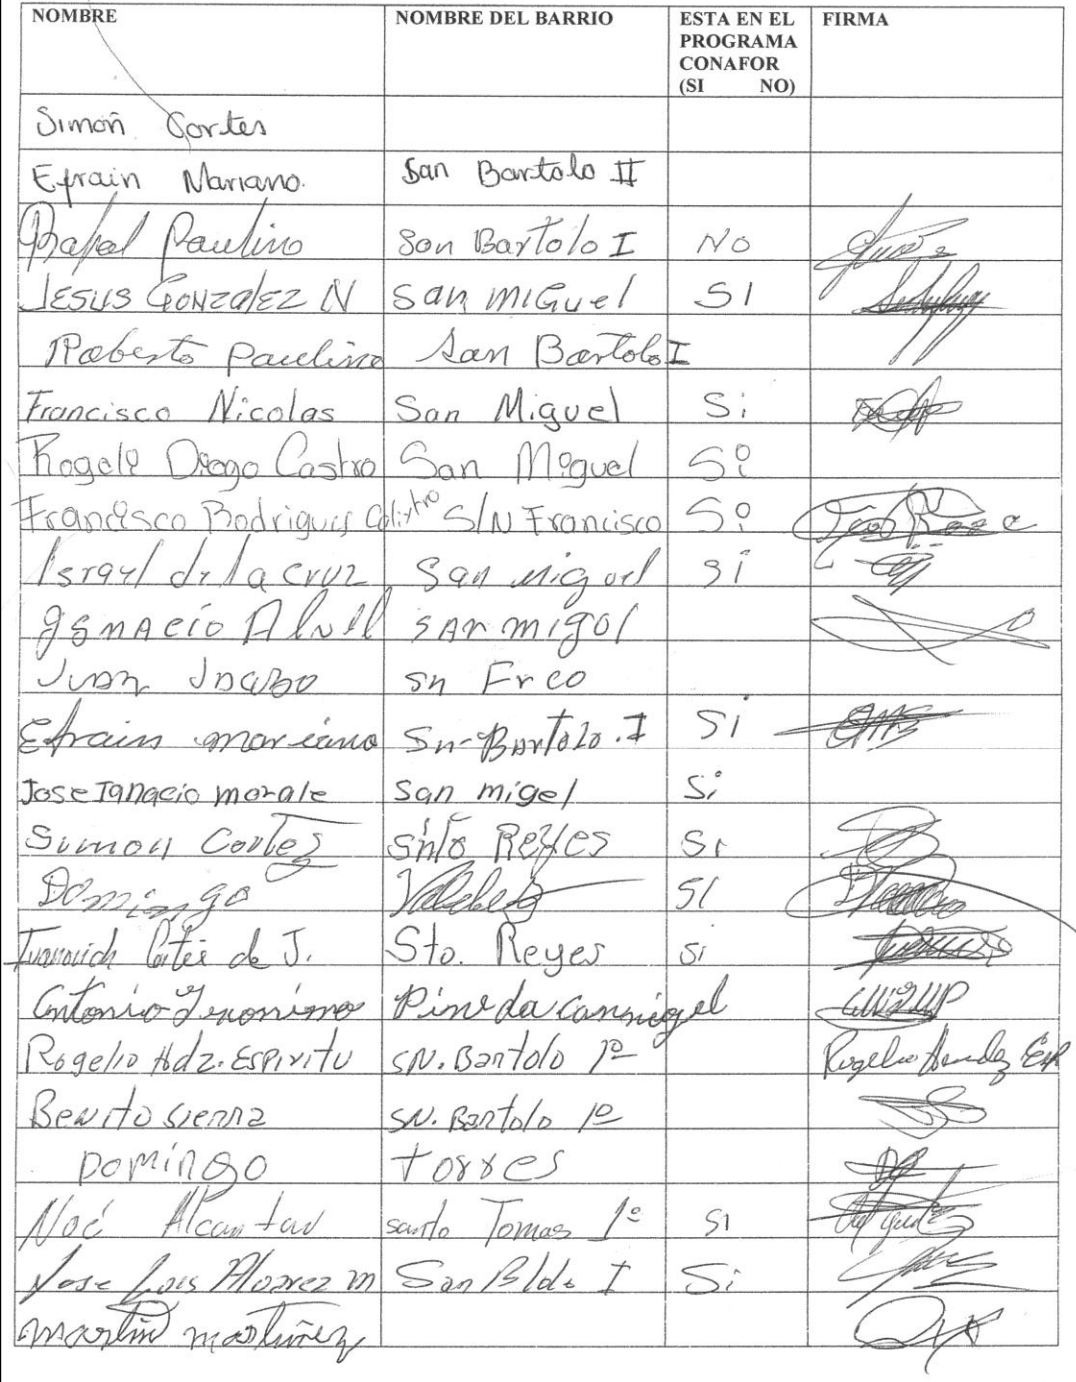 NOMBRE NOMBRE DEL BARRIO ESTA EN EL PROGRAMA CONAFOR (SI NO) FIRMA
Simoñ Cortes
Efrain Mariano. San Bartolo II
Rafael Paulino San Bartolo I NO
JESUS GONZALEZ N san miGuel SI
Roberto Paulino San Bartolo I
Francisco Nicolas San Miguel Si
Rogeli Diego Castro San Miguel Si
Francisco Rodrigues Calixtro S/N Francisco Si
Israel de la cruz San miguel si
SAn migol
Juan sn Frco
Efrain mariano Sn-Bartolo.I Si
Jose Ignacio morale San migel Si
Simon Cortez snto Reyes Si
Domingo Valdez SI
Cortés de J. Sto. Reyes si
Antonio Jeronimo Pineda
Rogelio Hdz. ESPIRITU SN. Bartolo 1º Rogelio
Benito sierra SN. Bartolo 1º
DOMINGO torres
Noé Alcantar santo Tomas 1º SI
Jose Lois Alvarez m San I Si
martin martiñez